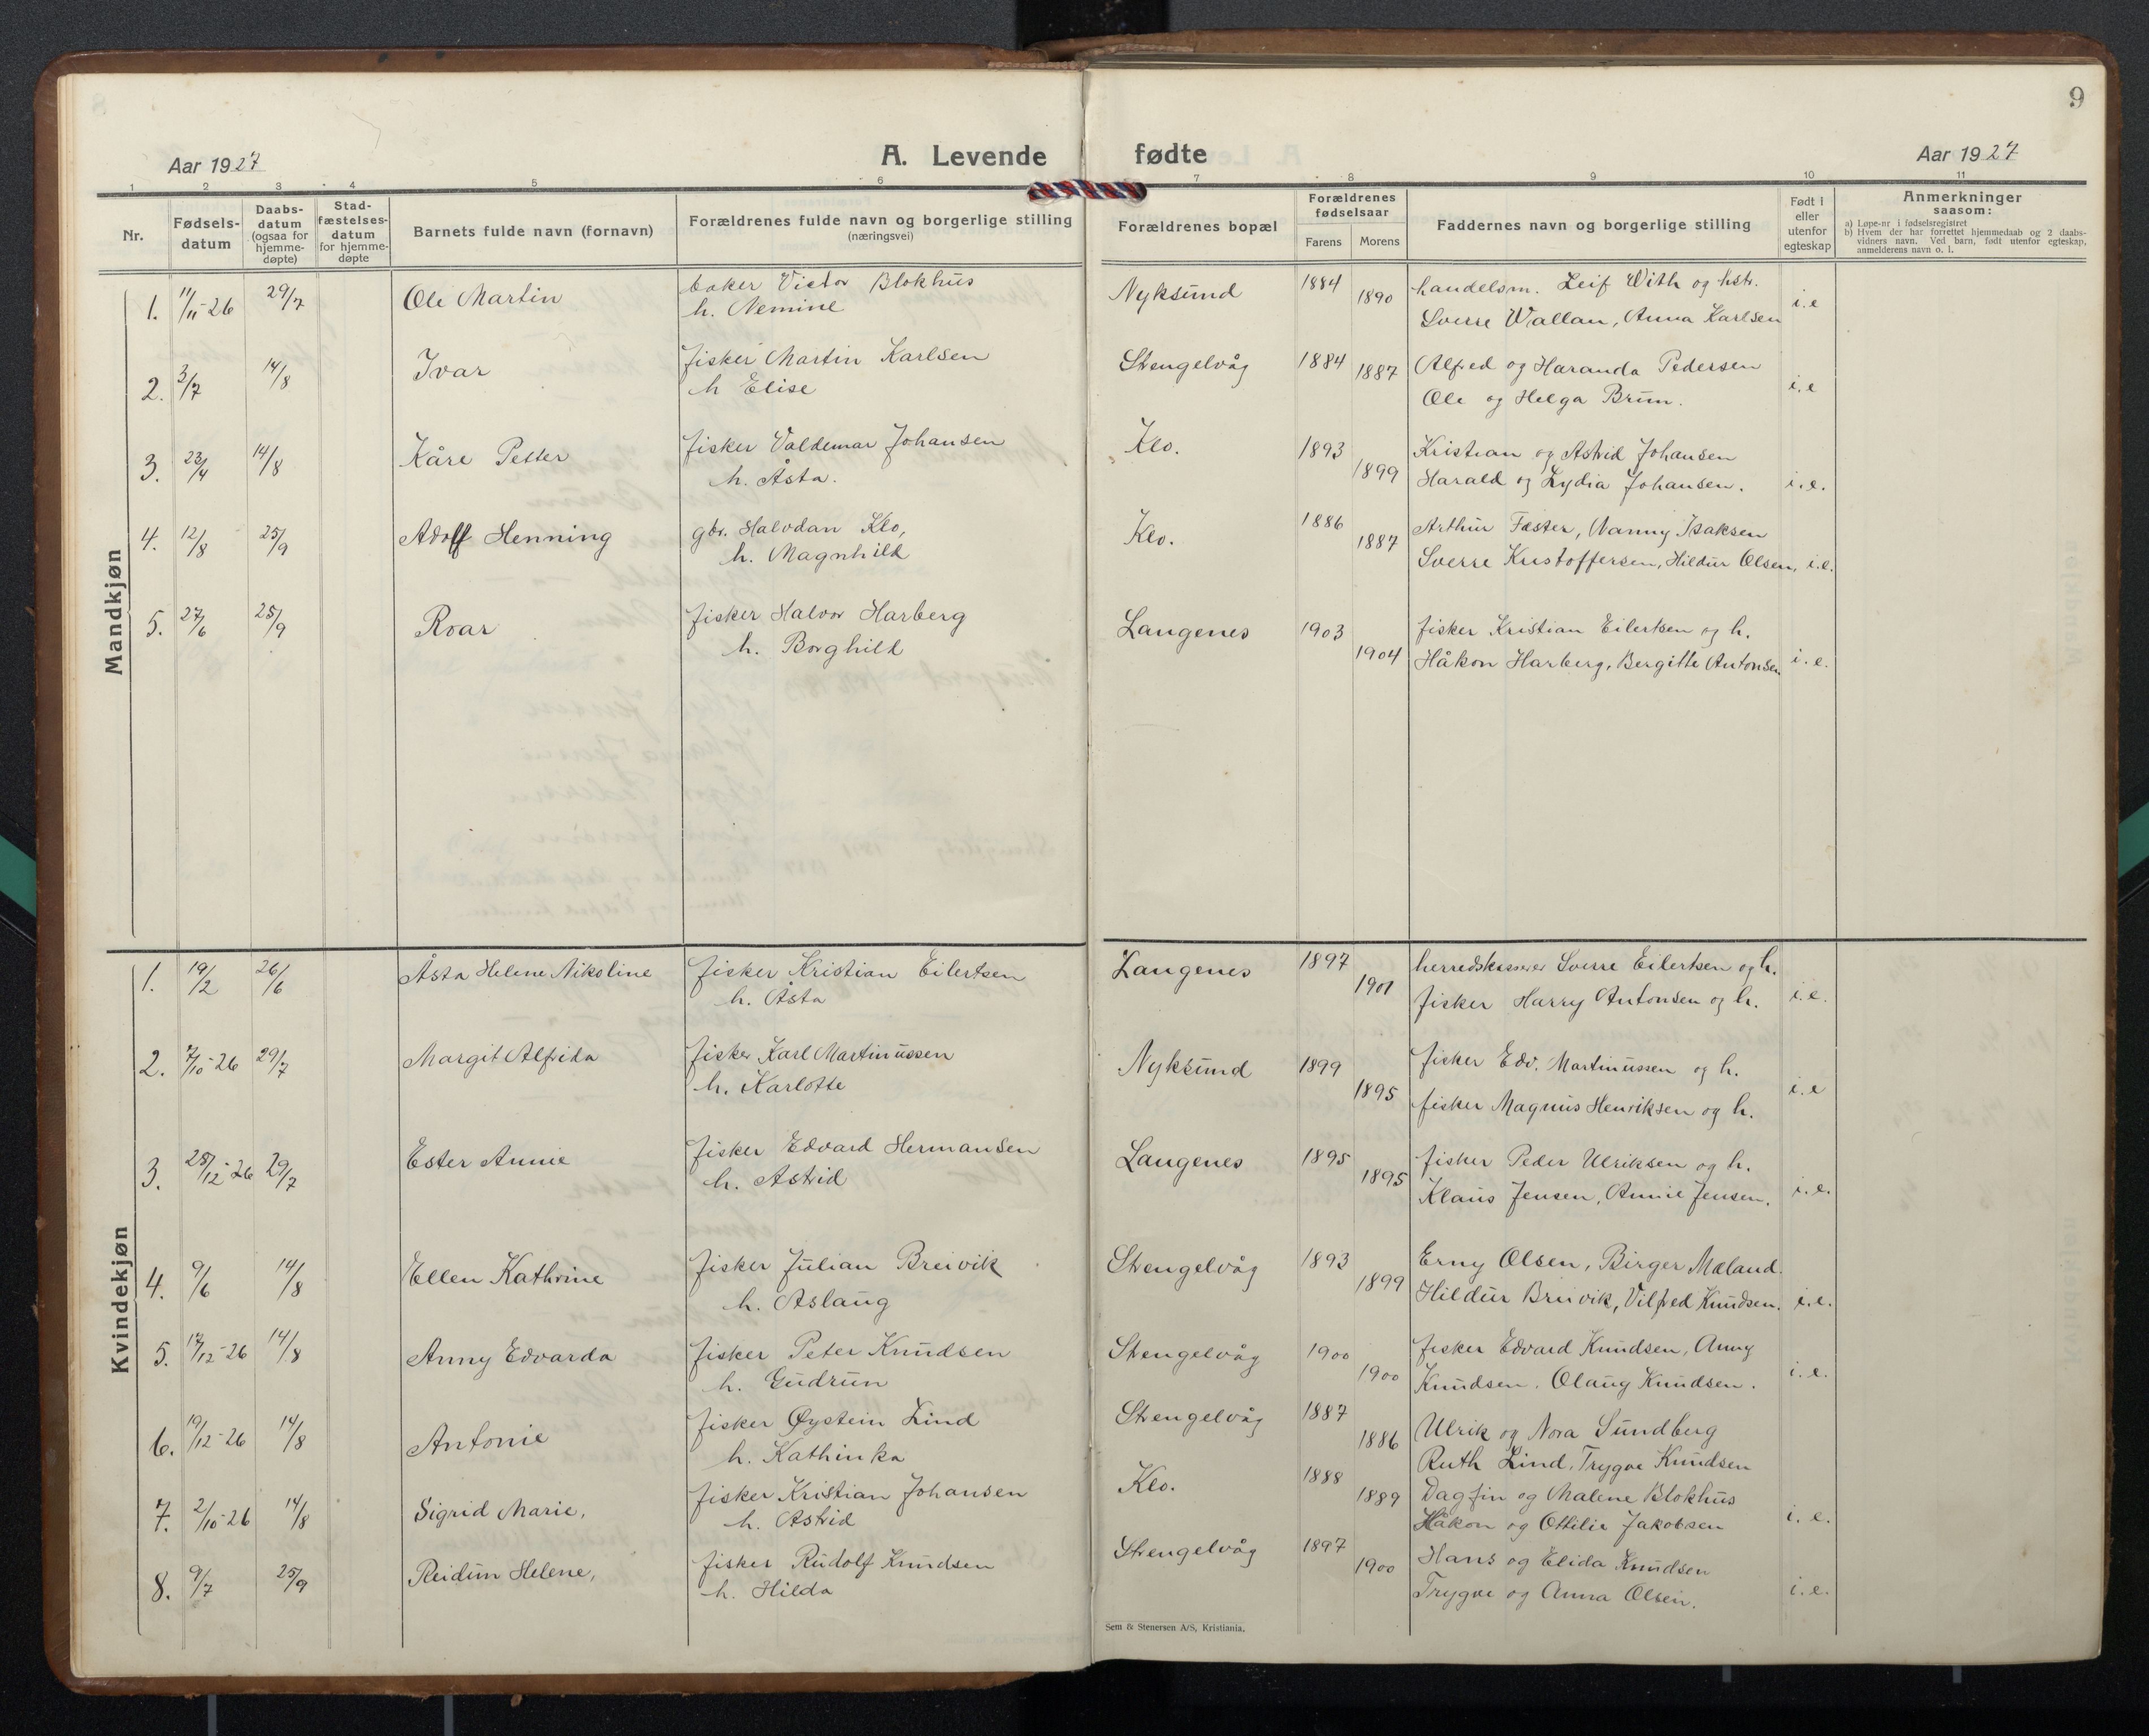 9
Aar 1927
A. Levende fødte
Aar 1927
1 2 3 4 5 6 7 8 9 10 11
Nr.
Fødsels-
datum
Daabs-
datum
(ogsaa for
hjemme-
døpte)
Stad-
fæstelses-
datum
for hjemme-
døpte
Barnets fulde navn (fornavn)
Forældrenes fulde navn og borgerlige stilling
(næringsvei)
Forældrenes bopæl
Forældrenes
fødselsaar
Farens Morens
Faddernes navn og borgerlige stilling
Født i
eller
utenfor
egteskap
Anmerkninger
saasom:
a) Løpe-nr i fødselsregistret
b) Hvem der har forrettet hjemmedaab og 2 daabs-
vidners navn. Ved barn, født utenfor egteskap,
anmelderens navn o. l.
Mandkjøn
1. 11/11-26 29/7 Ole Martin baker Victor Blokhus Nyksund 1884 handelsm. Leif With og hstr.
h. Nemine 1890 Sverre Wallan, Anna Karlsen i.e
2. 3/7 14/8 Ivar fisker Martin Karlsen Strengelvåg 1884 Alfred og Haranda Pedersen
h Elise 1887 Ole og Helga Brun. i.e
3. 23/4 14/8 Kåre Petter fisker Valdemar Johansen Klo. 1893 Kristian og Astrid Johansen
h. Åsta. 1899 Harald og Lydia Johansen. i.e.
4. 12/8 25/9 Adolf Henning gbr. Halvdan Klo, Klo. 1886 Arthur Fæster, Nanny Isaksen
h. Magnhild 1887 Sverre Kristoffersen, Hildur Olsen, i.e.
5. 27/6 25/9 Roar fisker Halvor Harberg Langenes 1903 fisker Kristian Eilertsen og h.
h. Borghild 1904 Håkon Harberg, Bergitte Antonsen i.e.
Kvindekjøn
1. 19/2 26/6 Åsta Helene Nikoline fisker Kristian Eilertsen Langenes 1897 herredskasserer Sverre Eilertsen og h.
h. Åsta 1901 fisker Harry Antonsen og h. i.e.
2. 7/10-26 29/7 Margit Alfrida fisker Karl Martinussen Nyksund 1899 fisker Edv. Martinussen og h.
h. Karlotte 1895 fisker Magnus Henriksen og h. i.e
3. 25/12-26 29/7 Ester Annie fisker Edvard Hermansen Langenes 1895 fisker Peder Ulriksen og h.
h. Astrid 1895 Klaus Jensen, Annie Jensen. i.e.
4. 9/6 14/8 Ellen Kathrine fisker Julian Breivik Strengelvåg 1893 Erny Olsen, Birger Mæland.
h. Aslaug 1899 Hildur Breivik, Vilfred Knudsen. i.e.
5. 17/12-26 14/8 Anny Edvarda fisker Peter Knudsen Strengelvåg 1900 fisker Edvard Knudsen, Anny
h. Gudrun 1900 Knudsen, Olaug Knudsen. i.e.
6. 19/12-26 14/8 Antonie fisker Øystein Lind Strengelvåg 1887 Ulrik og Nora Sundberg
h. Kathinka 1886 Ruth Lind, Trygve Knudsen
7. 2/10-26 14/8 Sigrid Marie, fisker Kristian Johansen Klo. 1888 Dagfin og Malene Blokhus
h. Astrid 1889 Håkon og Ottilie Jakobsen i.e.
8. 9/7 25/9 Reidun Helene, fisker Rudolf Knudsen Strengelvåg 1897 Hans og Elida Knudsen
h. Hilda 1900 Trygve og Anna Olsen. i.e.
Sem & Stenersen A/S, Kristiania.